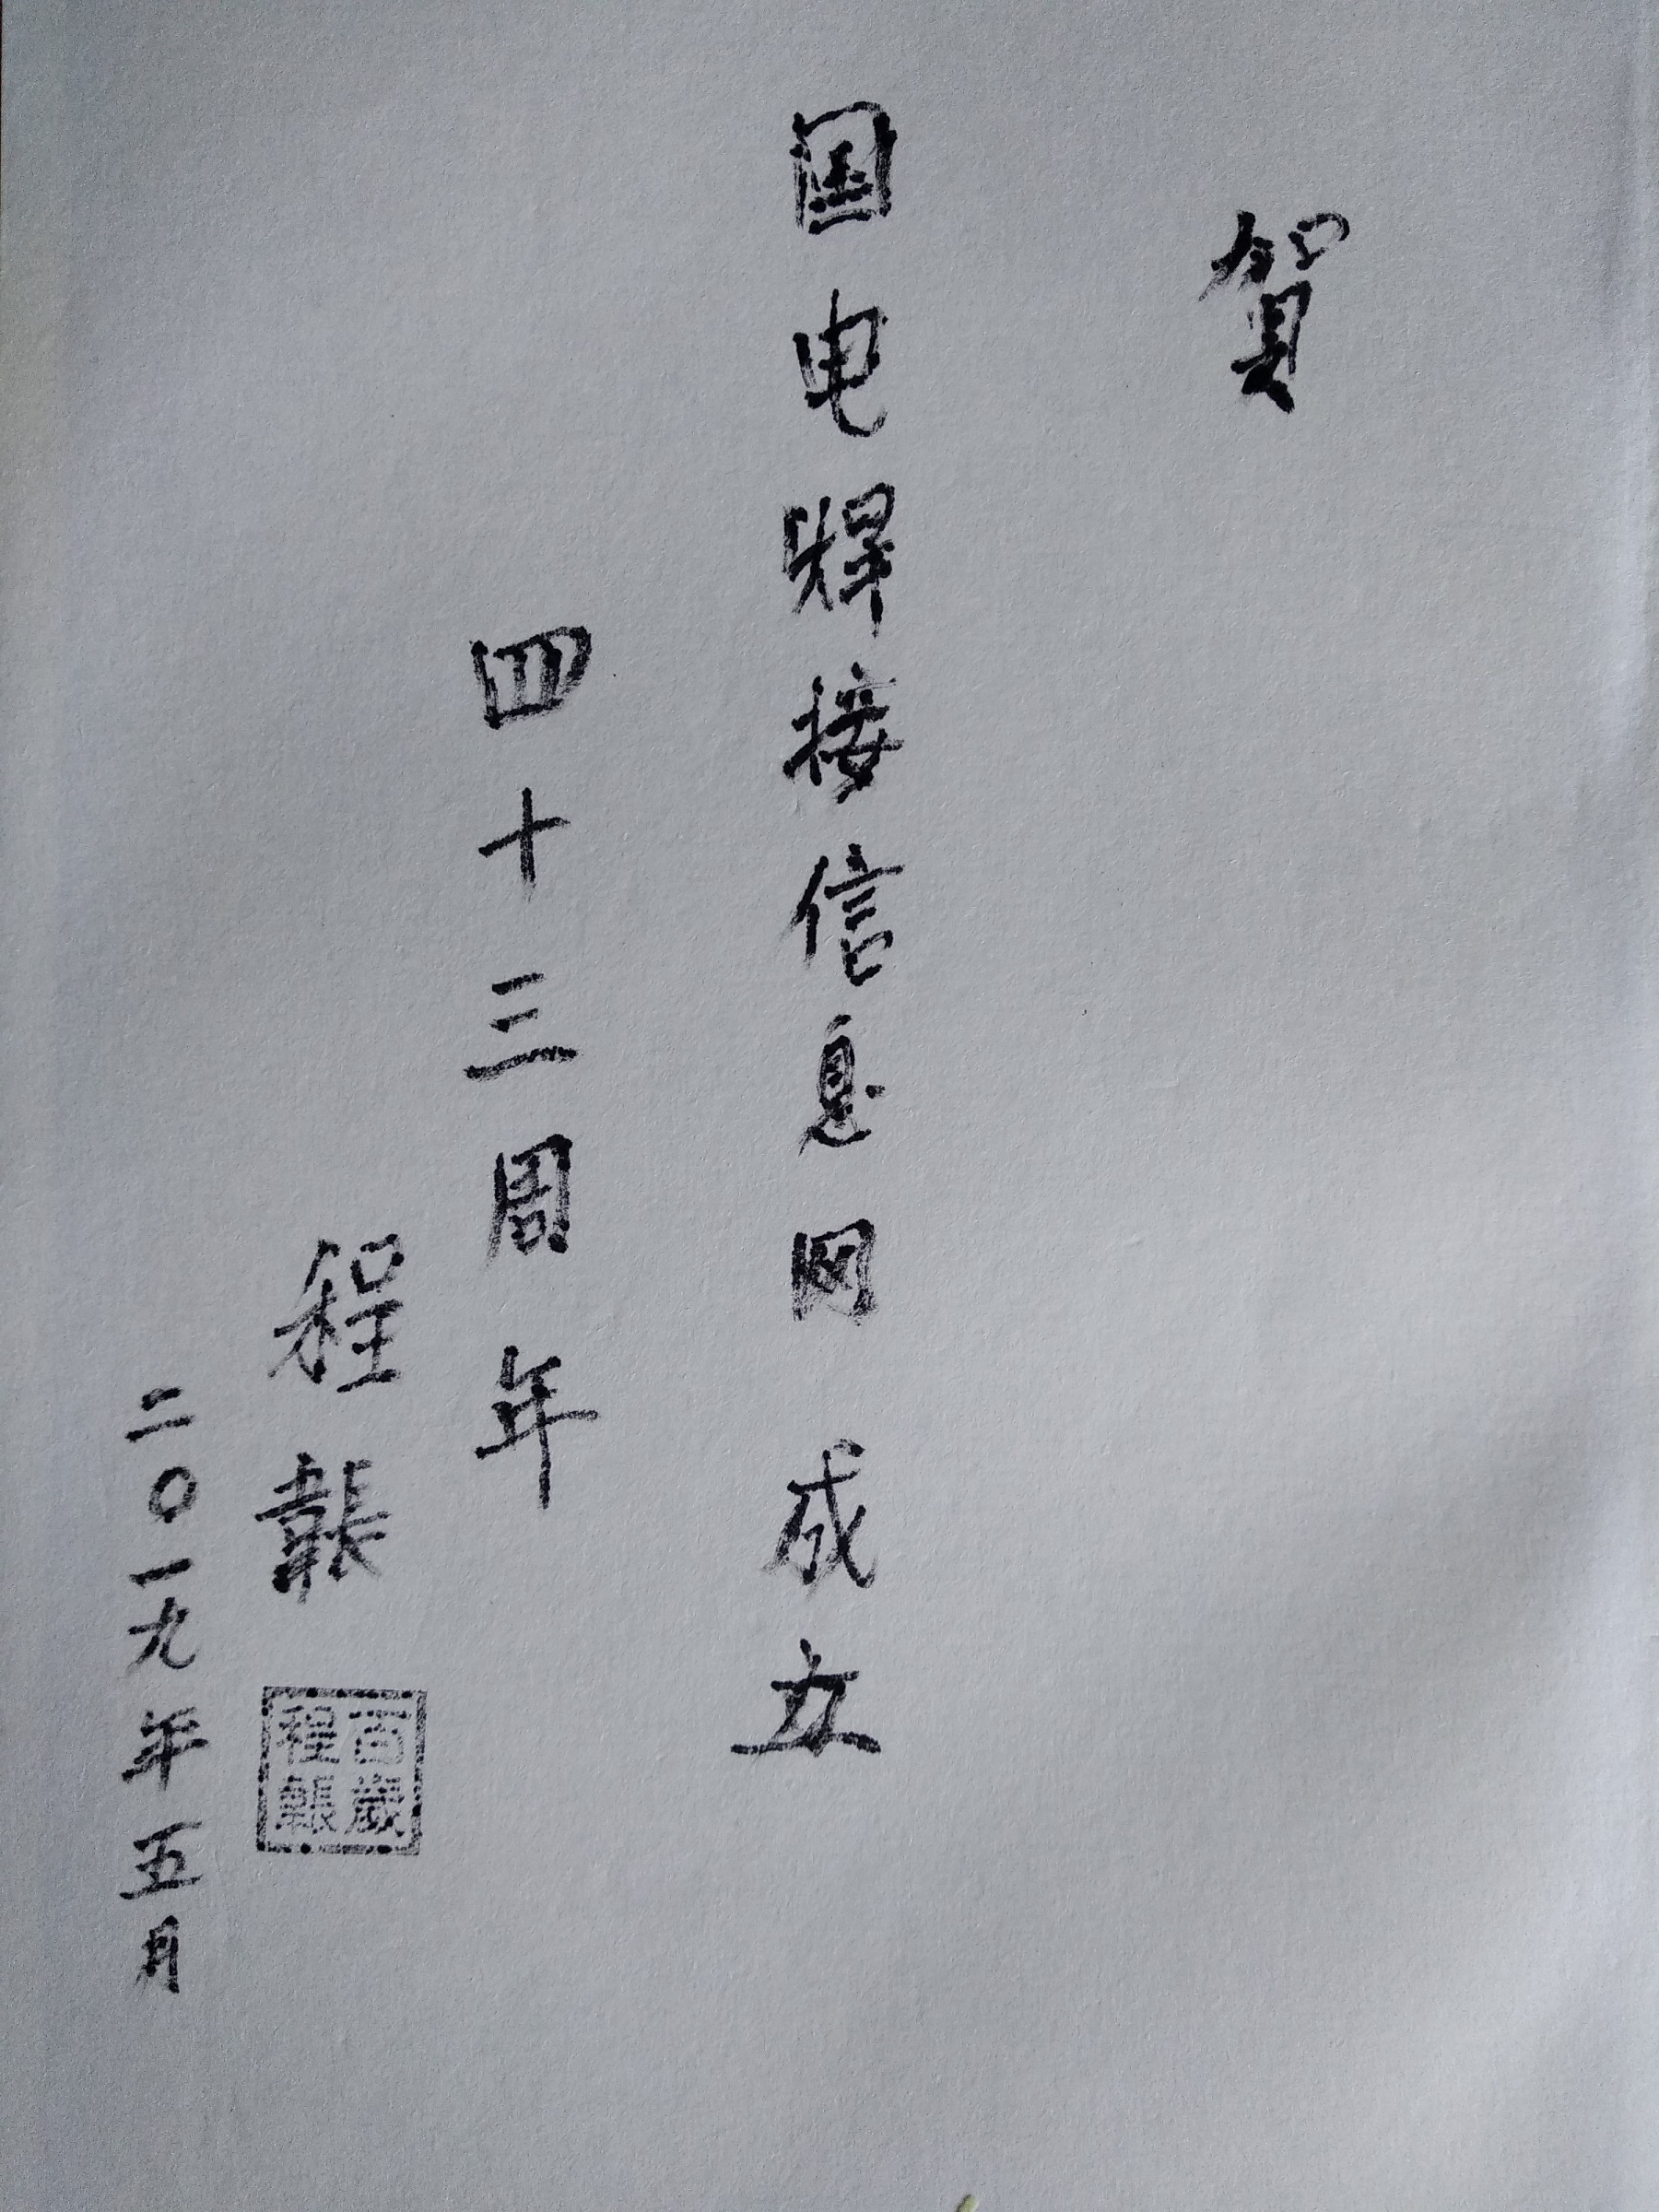 賀
国电焊接信息网成立
四十三周年
程韔
二〇一九年五月
百歲
程韔